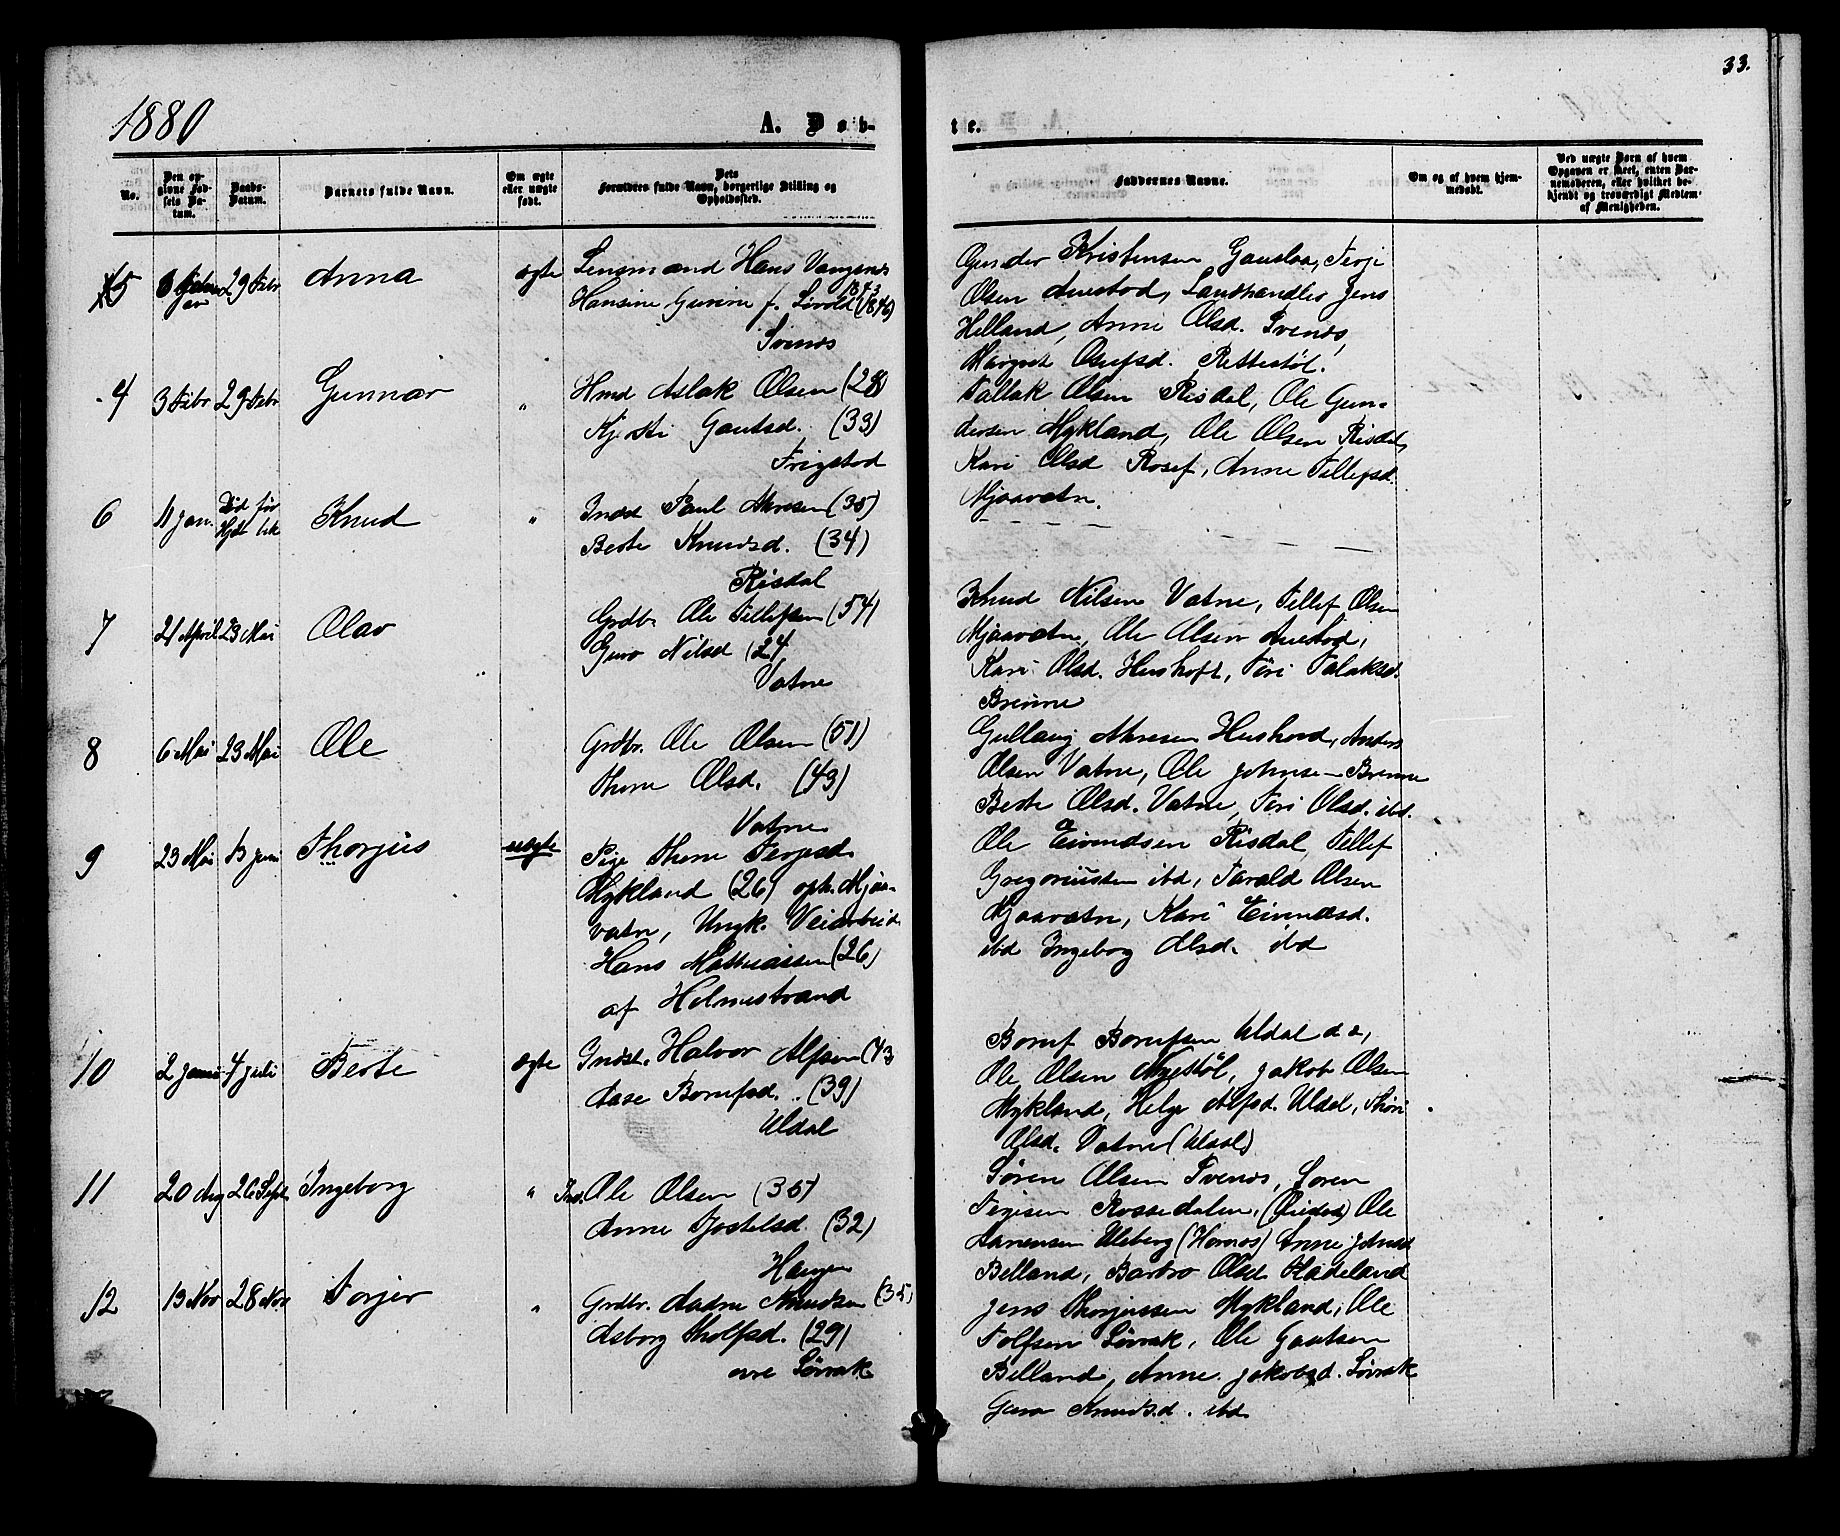 33.
1880
A. Døb-
te.
No.
Den op-
givne Fød-
sels Da-
tum.
Daabs-
Datum.
Barnets fulde Navn.
Om ægte
eller uægte
født.
Dets
Forældres fulde Navn, borgerlige Stilling og
Opholdssted.
Faddernes Navne.
Om og af hvem hjem-
medøbt.
Ved uægte Børn af hvem
Opgaven er skeet, enten Bar-
nemoderen, eller hvilket be-
kjendt og troværdigt Medlem
af Menigheden.
5 29 Febr Anna ægte Lensmand Hans Vangsnes
1843
Hansine Gurine f. Sivold (1846)
Svenes
Gunder Kristensen Gauslaa, Terje
Olsen Austod, Landhandler Jens
Helland, Anne Olsd. Svenes,
Margret Osufsd. Rettestøl.
4 3 Febr 29 Febr Gunnar " Hmd Aslak Olsen (28)
Kjersti Gautsd. (33)
Frigstod
Tallak Olsen Risdal, Ole Gun-
dersen Mykland, Ole Olsen Risdal,
Kari Olsd Rosef, Anne Tellefsd.
Mjaavatn.
6 11 Jan. Død før Knud " Indst Paul Akresen (35)
Hjdt
Berte Knudsd. (34)
Risdal
7 21 April 23 Mai Olav Grdbr. Ole Tellefsen (54)
Guro Nilsd (24
Vatne
Knud Nilsen Vatne, Tellef Olsen
Mjaavatn, Ole Olsen Austod,
Kari Olsd. Hushoft, Töri Talaksd.
Brenne
8 6 Mai 23 Mai Ole Grdbr. Ole Olsen (51)
Thone Olsd. (43)
Vatne
Gullaug Akresen Hushovd, Anders
Olsen Vatne, Ole Johnsen Brenne
Berte Olsd. Vatne, Töri Olsd. ibd.
9 23 Mai 13 Juni Thorjus uægte Pige Thone Terjesd.
Mykland (26) oph. Mjaa-
vatn, Ungk. Veiarbeid.
Hans Mathiassen (26)
af Holmestrand
Ole Eivindsen Risdal, Tellef
Gregoriussen ibd, Tarald Olsen
Mjaavatn, Kari Eivindsd.
ibd Ingeborg Olsd. ibd
10 2 Juni 4 Juli Berte ægte Indst. Halvor Alfsen (43
Aase Bornfsd. (39)
Uldal
Bornf Bornfsen Uldal d. æ,
Ole Olsen Myestøl, Jakob Olsen
Mykland, Helge Alfsd. Uldal, Thöri
Olsd. Vatne (Uldal)
11 20 Aug 26 Sept. Ingeborg " Ind. Ole Olsen (35)
Anne Jostelsd. (32)
Haugen
Søren Olsen Svenes, Søren
Terjesen Rossedalen, Ole
Sørensen Uleberg (Hornes) Anne Johnsd
Belland, Barbro Olsd Hadeland
12 13 Nov 28 Nov Torjer " Grdbr. Aadne Knudsen (35)
Asborg Tholfsd. (29)
øvre Søvrak
Jens Thorjussen Mykland, Ole
Tolfsen Søvrak, Ole Gautsen
Belland, Anne Jakobsd. Søvrak
Guro Knudsd. ibd